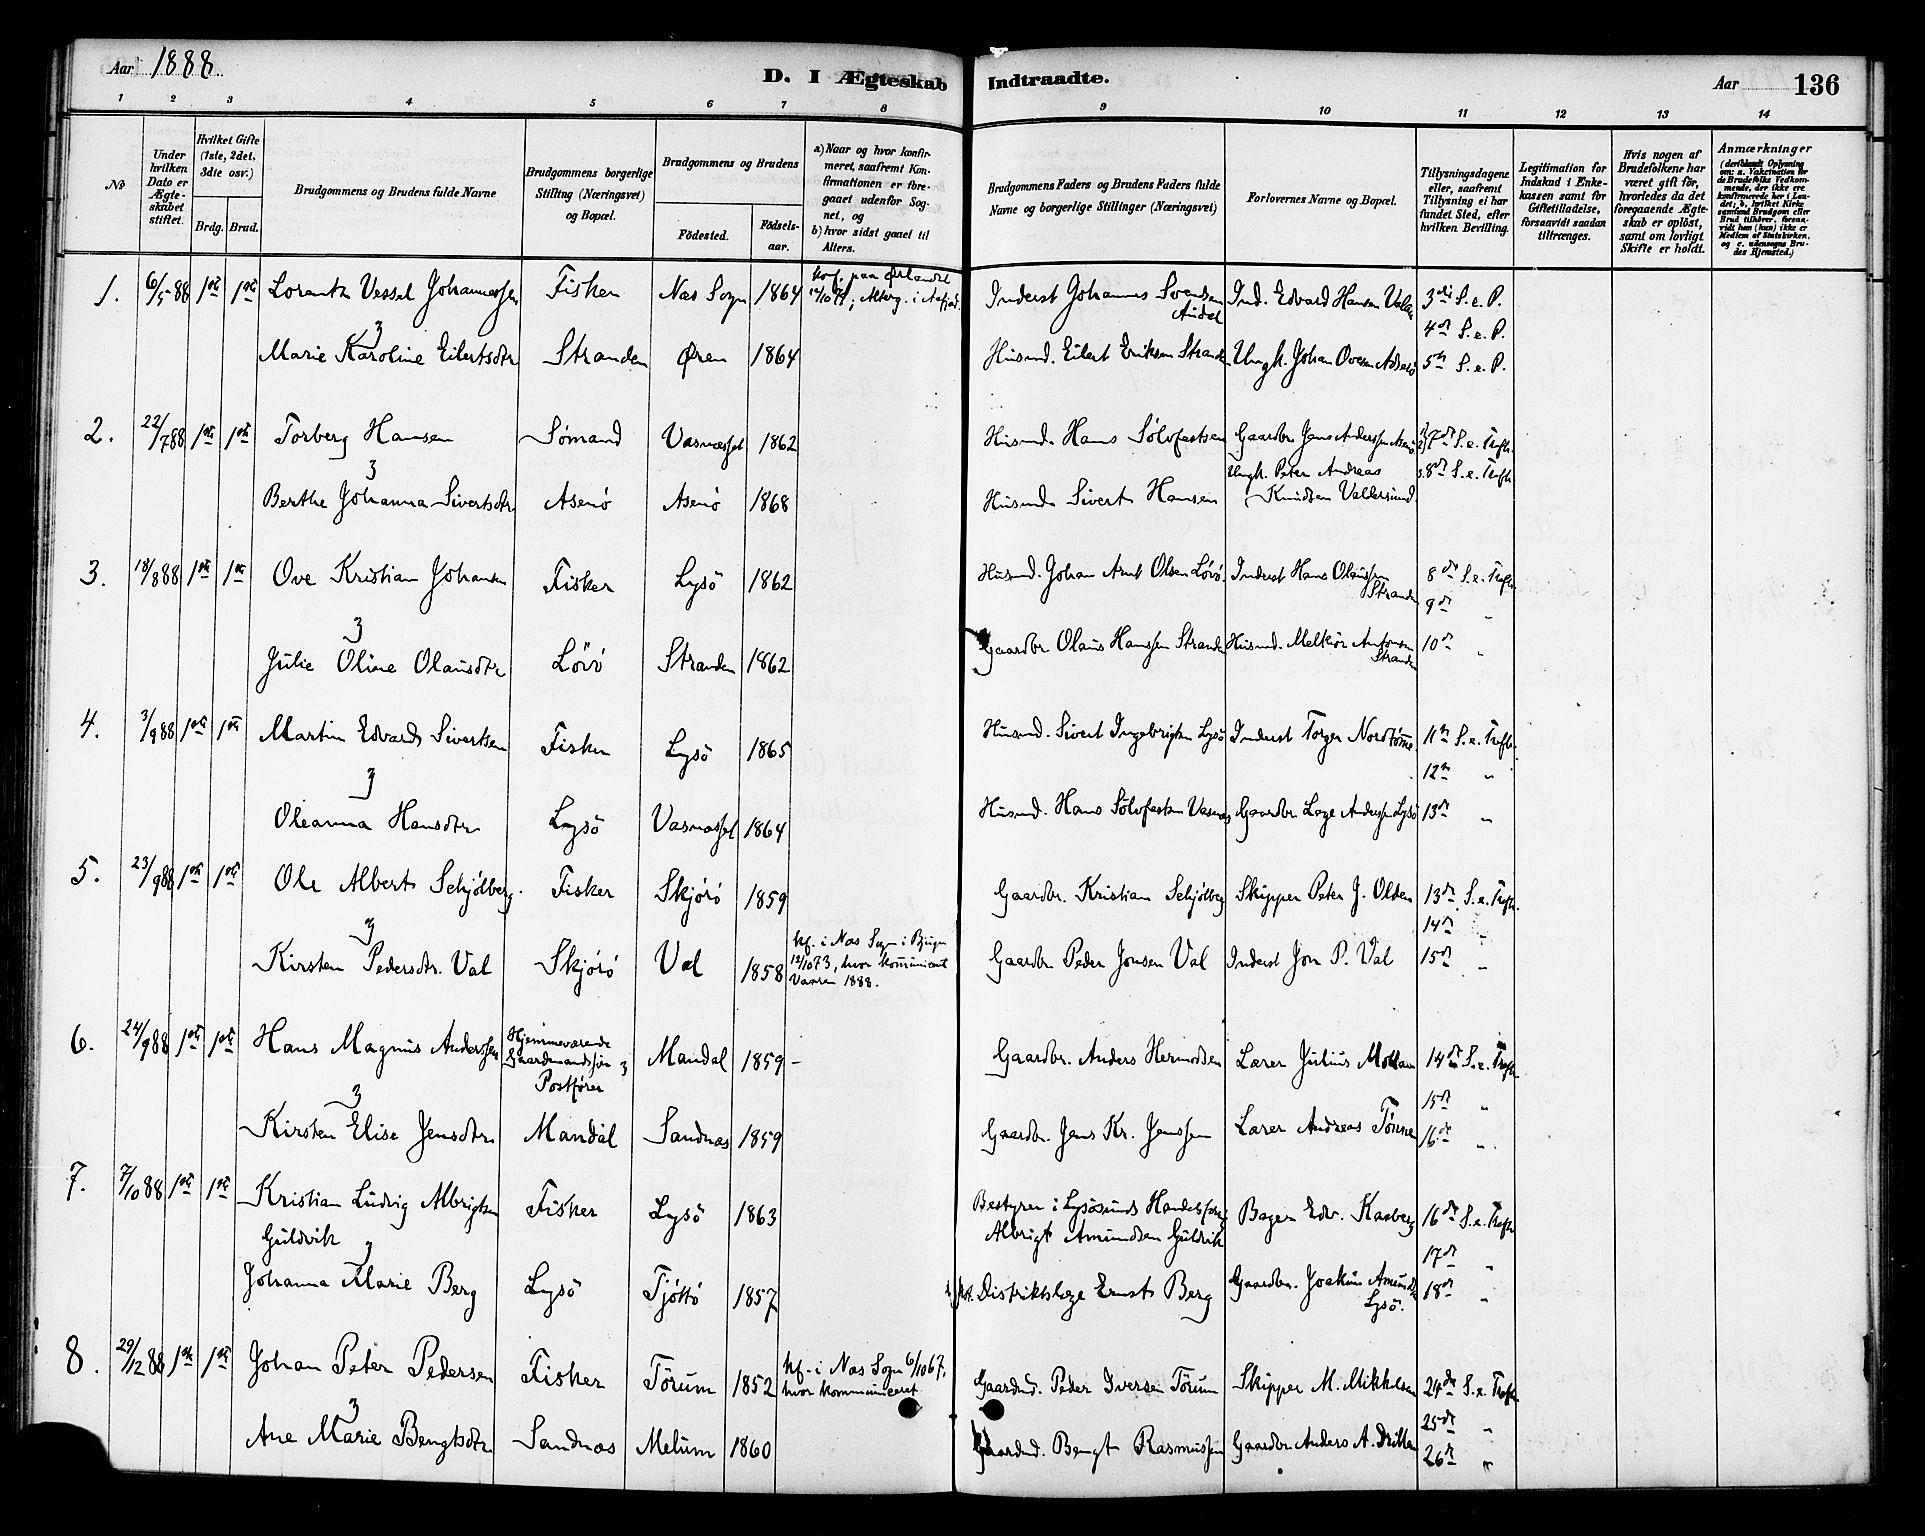 Aar 1888
D. I Ægteskab Indtraadte.
Aar 136
1 2 3 4 5 6 7 8 9 10 11 12 13 14
№
Under hvilken Dato er Ægteskabet stiftet.
Hvilket Gifte (1ste, 2det, 3die osv.)
Brdg. Brud.
Brudgommens og Brudens fulde Navne
Brudgommens borgerlige Stilling (Næringsvei) og Bopæl.
Brudgommens og Brudens
Fødested. Fødselsaar.
a) Naar og hvor konfirmeret, saafremt Konfirmationen er foregaaet udenfor Sognet, og
b) hvor sidst gaaet til Alters.
Brudgommens Faders og Brudens Faders fulde Navne og borgerlige Stillinger (Næringsvei)
Forlovernes Navne og Bopæl.
Tillysningsdagene eller, saafremt Tillysning ei har fundet Sted, efter hvilken Bevilling.
Legitimation for Indskud i Enkekassen samt for Giftetilladelse, forsaavidt saadan tiltrænges.
Hvis nogen af Brudefolkene har været gift før, hvorledes da det foregaaende Ægteskab er opløst, samt om lovligt Skifte er holdt.
Anmærkninger
1. 6/5 88 1ste 1ste Lorentz Vessel Johannessen Fisker Næs Sogn 1864 konf. paa Ørlandet Inderst Johannes Svendsen Ind. Edvard Hansen 3die S. e. P.
4de S. e. P.
3
Marie Karoline Eilertsdtr Stranden Øren 1864 Husmd. Eilert Eriksen Stranden Ungk. Johan Ovesen 5te S. e. P.
2. 22/7 88 1ste 1ste Torberg Hansen Sømand Vasnæsset 1862 Husmd. Hans Sølvfestsen Gaardbr. Jens Anderssen Asenø 7de S. e. Trefh.
3 Ungk. Peter Andreas 8de S. e. Trefh.
Berthe Johanna Sivertsdtr. Asenø Asenø 1868 Husmd. Sivert Hansen Knudsen Vallersund.
3. 18/8 88 1ste 1ste Ove Kristian Johansen Fisker Lysö 1862 Husmd. Johan Arnt Olsen Lövö. Inderst Hans Olaussen Stranden 8de S. e. Trefh.
9de "
3
Julie Oline Olausdtr Lövö Stranden 1862 Gaardbr Olaus Hanssen Stranden Husmd. Melkior Antonsen Stranden 10de "
4. 3/9 88 1ste 1ste Martin Edvard Sivertsen Fisker Lysö 1865 Husmd. Sivert Ingebrigtsen Lysö Inderst Torger 11te S. e. Trefh.
12te "
3
Oleanna Hansdtr Lysö Vasnæsset 1864 Husmd. Hans Sölvfestsen Vasnæs Gaardbr. Anderssen Lysö 13de "
5. 23/9 88 1ste 1ste Ole Albert Schjølberg. Fisker Skjørö 1859 Gaardbr. Kristian Schjølberg Skipper Peter J. Olden 13de S. e. Trefh.
14de "
3
Kirsten Pedersdtr. Val Skjørö Val 1858 kf. i Næs Sogn i Bjugn 12/10 73, hvor kommunicant Vaaren 1888. Gaardbr. Peder Jonsen Val Inderst Jon P. Val 15de "
6. 24/9 88 1ste 1ste Hans Magnus Anderssen Hjemmeværende Gaardmandssøn & Postfører Mandal 1859 – Gaardbr. Anders Hermodsen Lærer Julius 14de S. e. Trefh.
15de "
3
Kirsten Elise Jensdtr. Mandal Sandnæs 1859 Gaardbr. Jens Kr. Jenssen Lærer Andreas Tønne 16de "
7. 7/10 88 1ste 1ste Kristian Ludvig Albrigtsen Guldvik Fisker Lysö 1863 Bestyrer i Lysösunds Handelsforeg Albrigt Amundsen Guldvik Bager Edv. Kasberg 16de S. e. Trefh
17de "
3
Johanna Marie Berg Lysö Tjøttö 1857 Distriktslæge Ernst Berg Gaardbr. Joakim Amundsen Lysö. 18de "
8. 29/12 88 1ste 1ste Johan Peter Pedersen Fisker Törum 1852 kf. i Næs Sogn 6/10 67, hvor kommuniceret Gaardmd. Peder Iversen Törum Skipper M. Mikkelsen 24de S. e. Trefh
25de "
3
Ane Marie Bengtsdtr Sandnæs Melum 1860 Gaardmd. Bengt Rasmussen Gaardbr. Anders A. 26de "